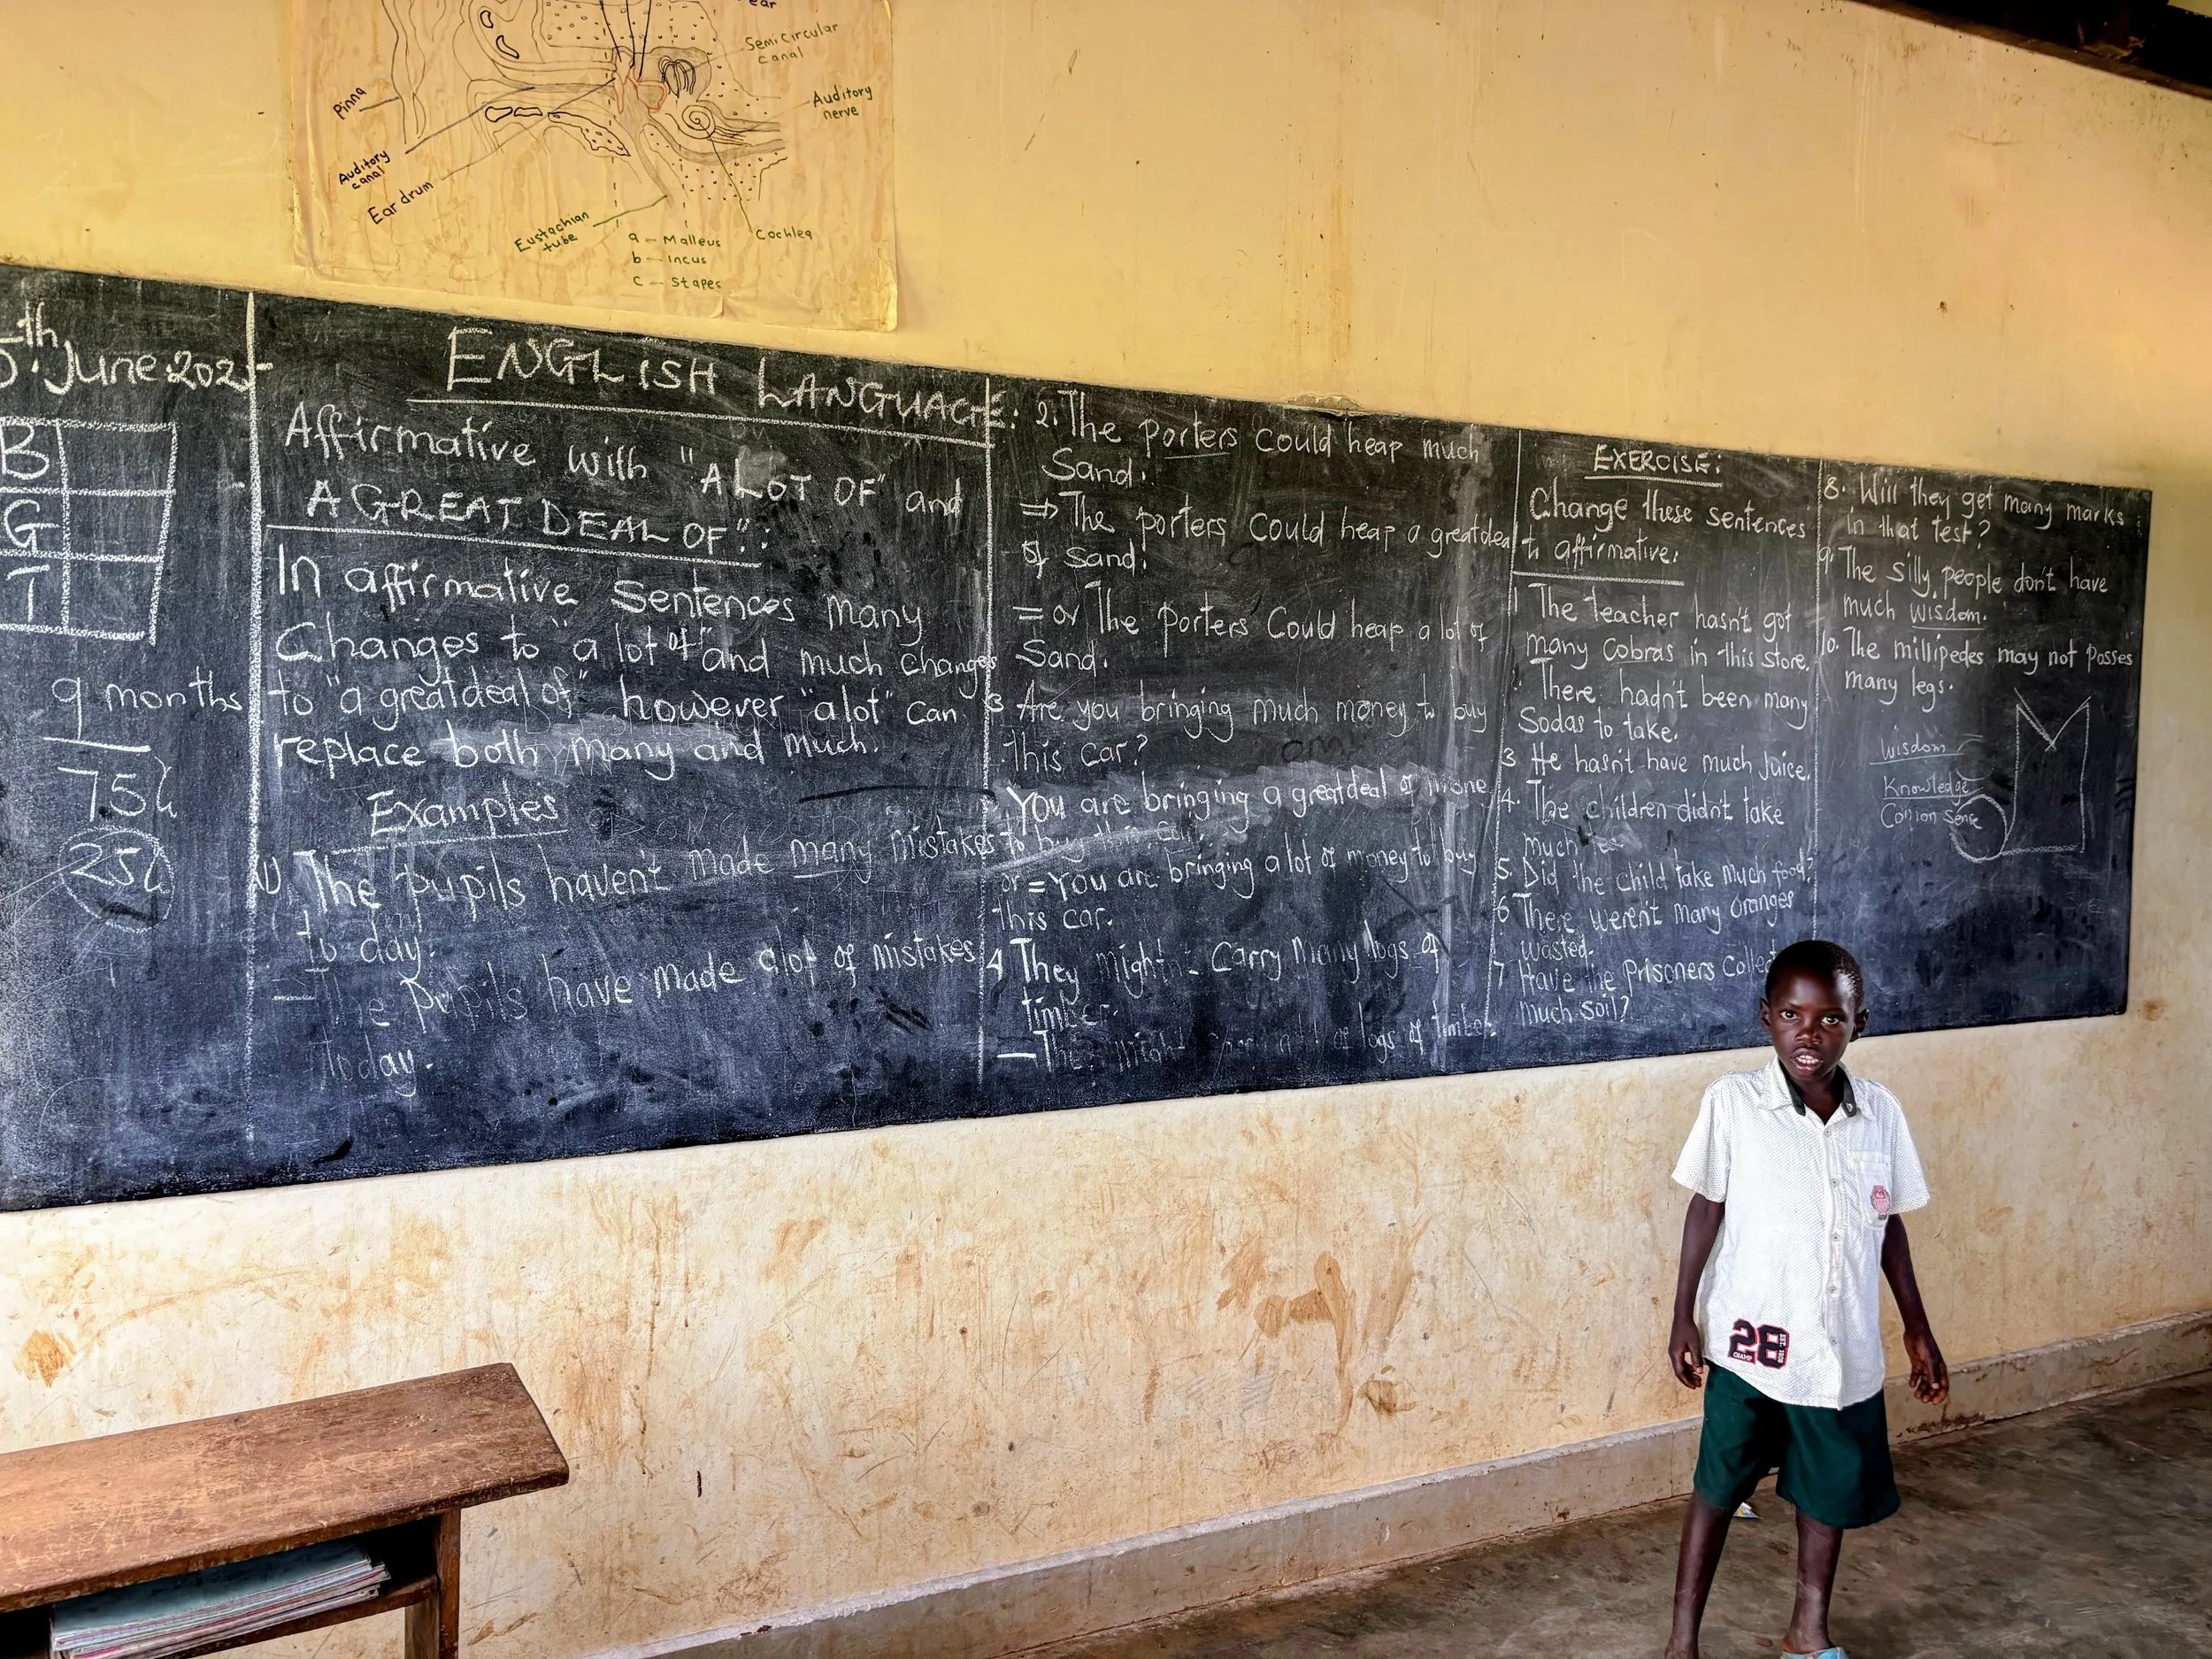 ear
Semicircular
canal
Pinna
Auditory
nerve
Auditory
canal
Ear drum
Eustachian
tube
Cochlea
a — Malleus
b — Incus
c — Stapes
th
June 202
B
G
T
9 months
ENGLISH LANGUAGE:
Affirmative with "A LOT OF" and
A GREAT DEAL OF":
In affirmative Sentences many
Changes to "a lot of" and much changes
to "a greatdeal of" however "alot" can
replace both many and much.
Examples
1) The pupils haven't made many mistakes
to day.
= The pupils have made alot of mistakes
today.
2. The porters could heap much
Sand.
⇒ The porters Could heap a greatdeal
of sand.
= or The porters Could heap a lot of
Sand.
3 Are you bringing much money to buy
this car?
You are bringing a greatdeal of mone
to buy this car.
or = You are bringing a lot of money to buy
this car.
4 They might Carry Many logs of
timber.
— might logs of timber.
EXERCISE:
Change these sentences
to affirmative:
1 The teacher hasn't got
many Cobras in this store.
There hadn't been many
Sodas to take.
3 He hasn't have much juice.
4. The children didn't take
much
5. Did the child take much food?
6 There weren't many oranges
wasted.
7 Have the Prisoners Collect
much soil?
8. Will they get many marks
in that test?
9. The silly people don't have
much wisdom.
10. The millipedes may not posses
many legs.
wisdom
Knowledge
Comon Sense
28
CHAMP